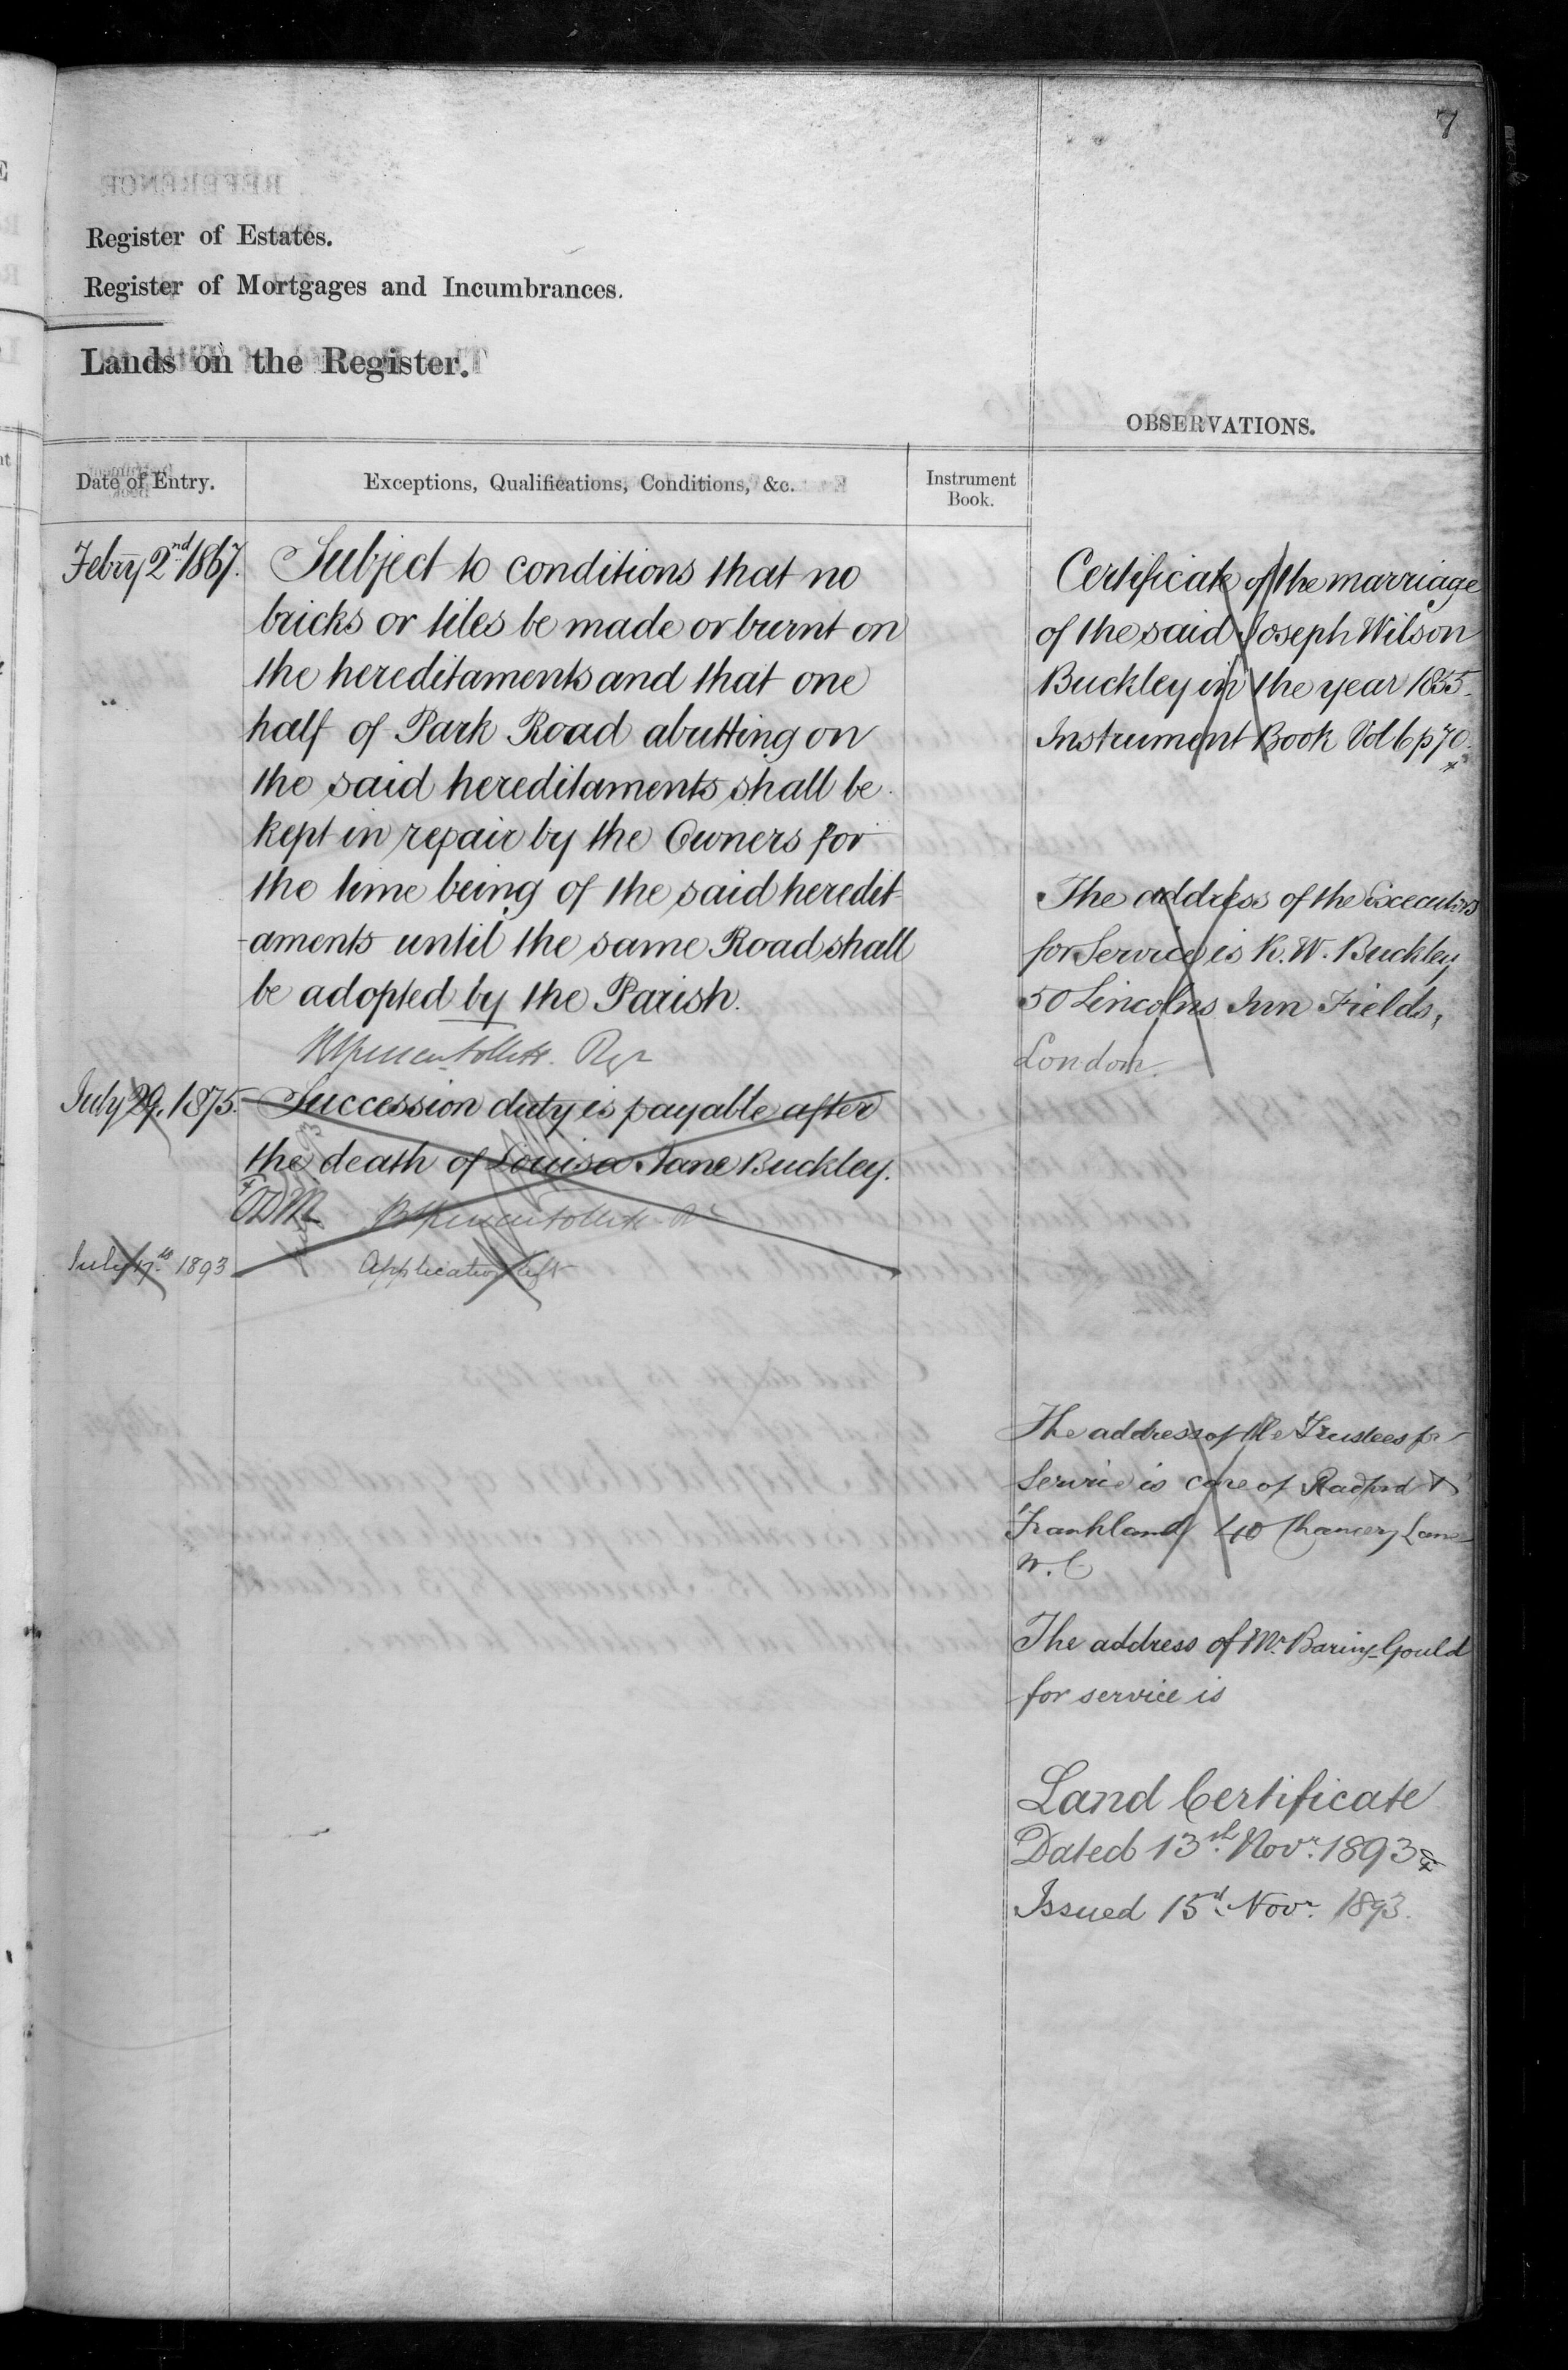 7
Register of Estates.
Register of Mortgages and Incumbrances.
Lands on the Register.
OBSERVATIONS.
Date of Entry.
Exceptions, Qualifications, Conditions, &c.
Instrument
Book.
Febry 2nd 1867.
Subject to conditions that no
bricks or tiles be made or burnt on
the hereditaments and that one
half of Park Road abutting on
the said hereditaments shall be
kept in repair by the Owners for
the time being of the said heredit-
-aments until the same Road shall
be adopted by the Parish.
Rgr
July 29, 1875.
Succession duty is payable after
the death of Louisa Jane Buckley.
July 17th 1893
Application left
Certificate of the marriage
of the said Joseph Wilson
Buckley in the year 1855.
Instrument Book Vol 6 p 70.
The address of the Executors
for Service is R. W. Buckley
50 Lincolns Inn Fields,
London.
The address of the Trustees for
Service is care of Radford &
Frankland 40 Chancery Lane
W. C
The address of Mr. Baring-Gould
for service is
Land Certificate
Dated 13th Novr. 1893 &
Issued 15d Novr. 1893.